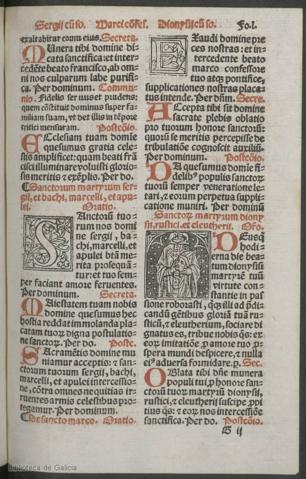 Sergii cū so. Marci cōfes. Dionysii cū so. Fo. l.
exaltabitur cornu eius. Secreta.
Munera tibi domine di
cata sanctifica: et inter
cedēte beato francisco, ab om
ni nos culparum labe purifi
ca. Per dominum. Commu
nio. Fidelis seruus et prudens:
quem cōstituit dominus super fa
miliam suam, vt det illis in tēpore
tritici mensuram. Postcōio.
Ecclesiam tuam domie
quesumus gratia celes
tis amplificet: quam beati frā
cisci illuminare voluisti glorio
sis meritis et exēplis. Per do.
Sanctorum martyrum ser
gii, et bachi, marcelli, et apu
lei. Oratio.
Sanctorū tuo
rum nos domi
ne sergii, ba
chi, marcelli, et
apulei btā me
rita prosequā
tur: et tuo sem
per faciant amore feruentes.
Per dominum. Secreta.
Maiestatem tuam nobis
domine quesumus hec
hostia reddat immolanda pla
catam: tuorū digna postulatio
ne sanctorū. Per do. Postcōio.
Sacramētis domine mu
niamur acceptis: et san
ctorum tuorum sergii, bachi,
marcelli, et apulei intercessio
ne, cōtra omnes nequitias ir
ruentes armis celestibus pro
tegamur. Per dominum.
De sancto marco. Oratio.
Exaudi domine pre
ces nostras: et in
tercedente beato
marco confessore
tuo atq; pontifice,
supplicationes nostras placa
tus intende. Per dñm. Secre.
Accepta tibi sit domine
sacrate plebis oblatio
pro tuorum honore sanctorū:
quorū se meritis percepisse de
tribulatiōe cognoscit auxiliū.
Per dominum. Postcōio.
Da quesumus domine fi
delibꝰ populis sanctorū
tuorū semper veneratione le
tari, et eorum perpetua suppli
catione muniri. Per dominū
Sanctorū martyrum dionys
ii, rustici, et eleutherii. Offo.
Deus q
hodi
erna die bea
tum dionysiū
martyrē tuū
virtute con
stantie in pas
sione roborasti, qq; illi ad p̄di
candū gētibus gloriā tuā ru
sticū, et eleutherium, sociare di
gnatus es, tribue nobis q̄s: ex
eorū imitatiōe, p̄ amore tuo p̄
spera mundi despicere, et nulla
eiꝰ aduersa formidare. p. Sec.
Oblata tibi dñe munera
populi tui p̄ honore san
ctorū tuorū martyrū dionysii,
rustici, et eleutherii suscipe p̄pi
tius q̄s: et eorū nos intercessiōe
sanctifica. Per do. Postcōio.
G ij
Biblioteca de Galicia